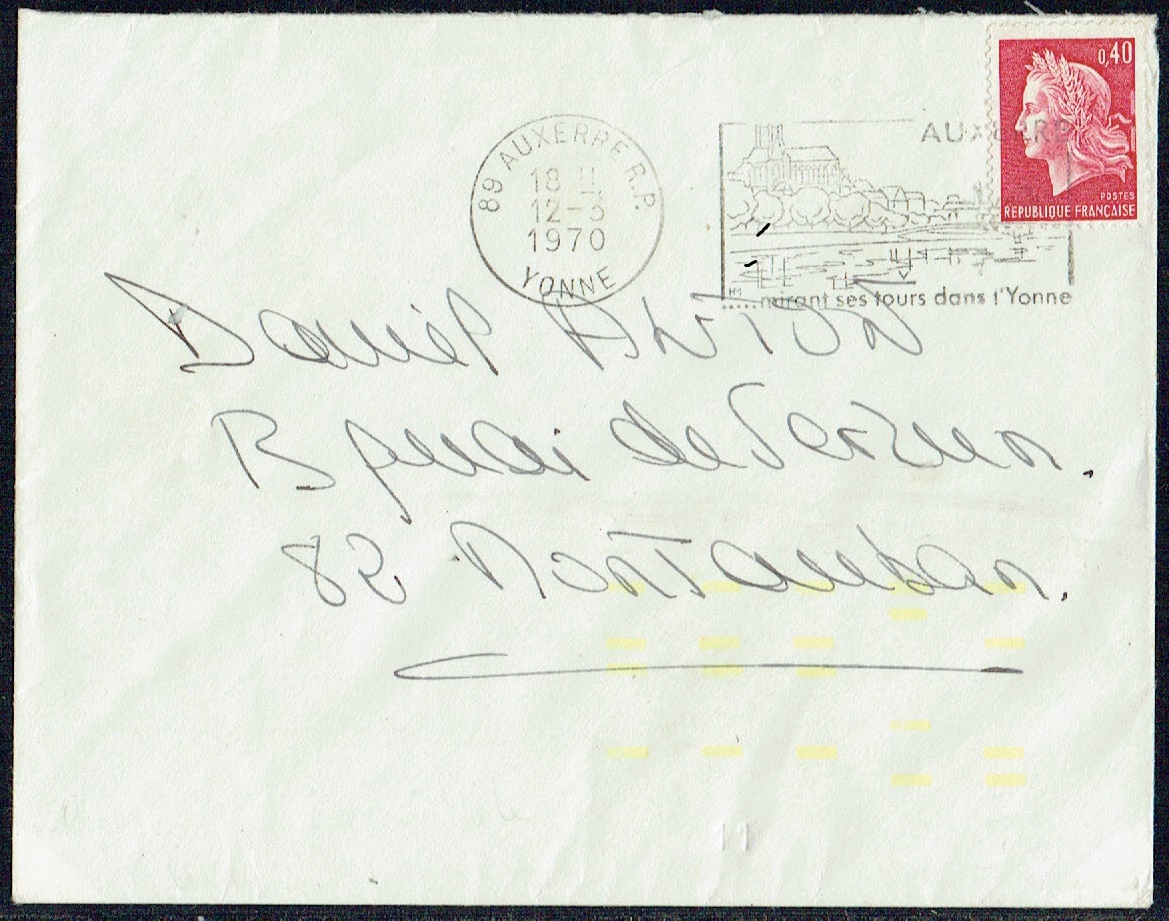 0,40
POSTES
REPUBLIQUE FRANÇAISE
89 AUXERRE R.P.
18 H
12-3
1970
YONNE
AUXERRE
HM
.....mirant ses tours dans l'Yonne
Daniel ANTON
82 Montauban.